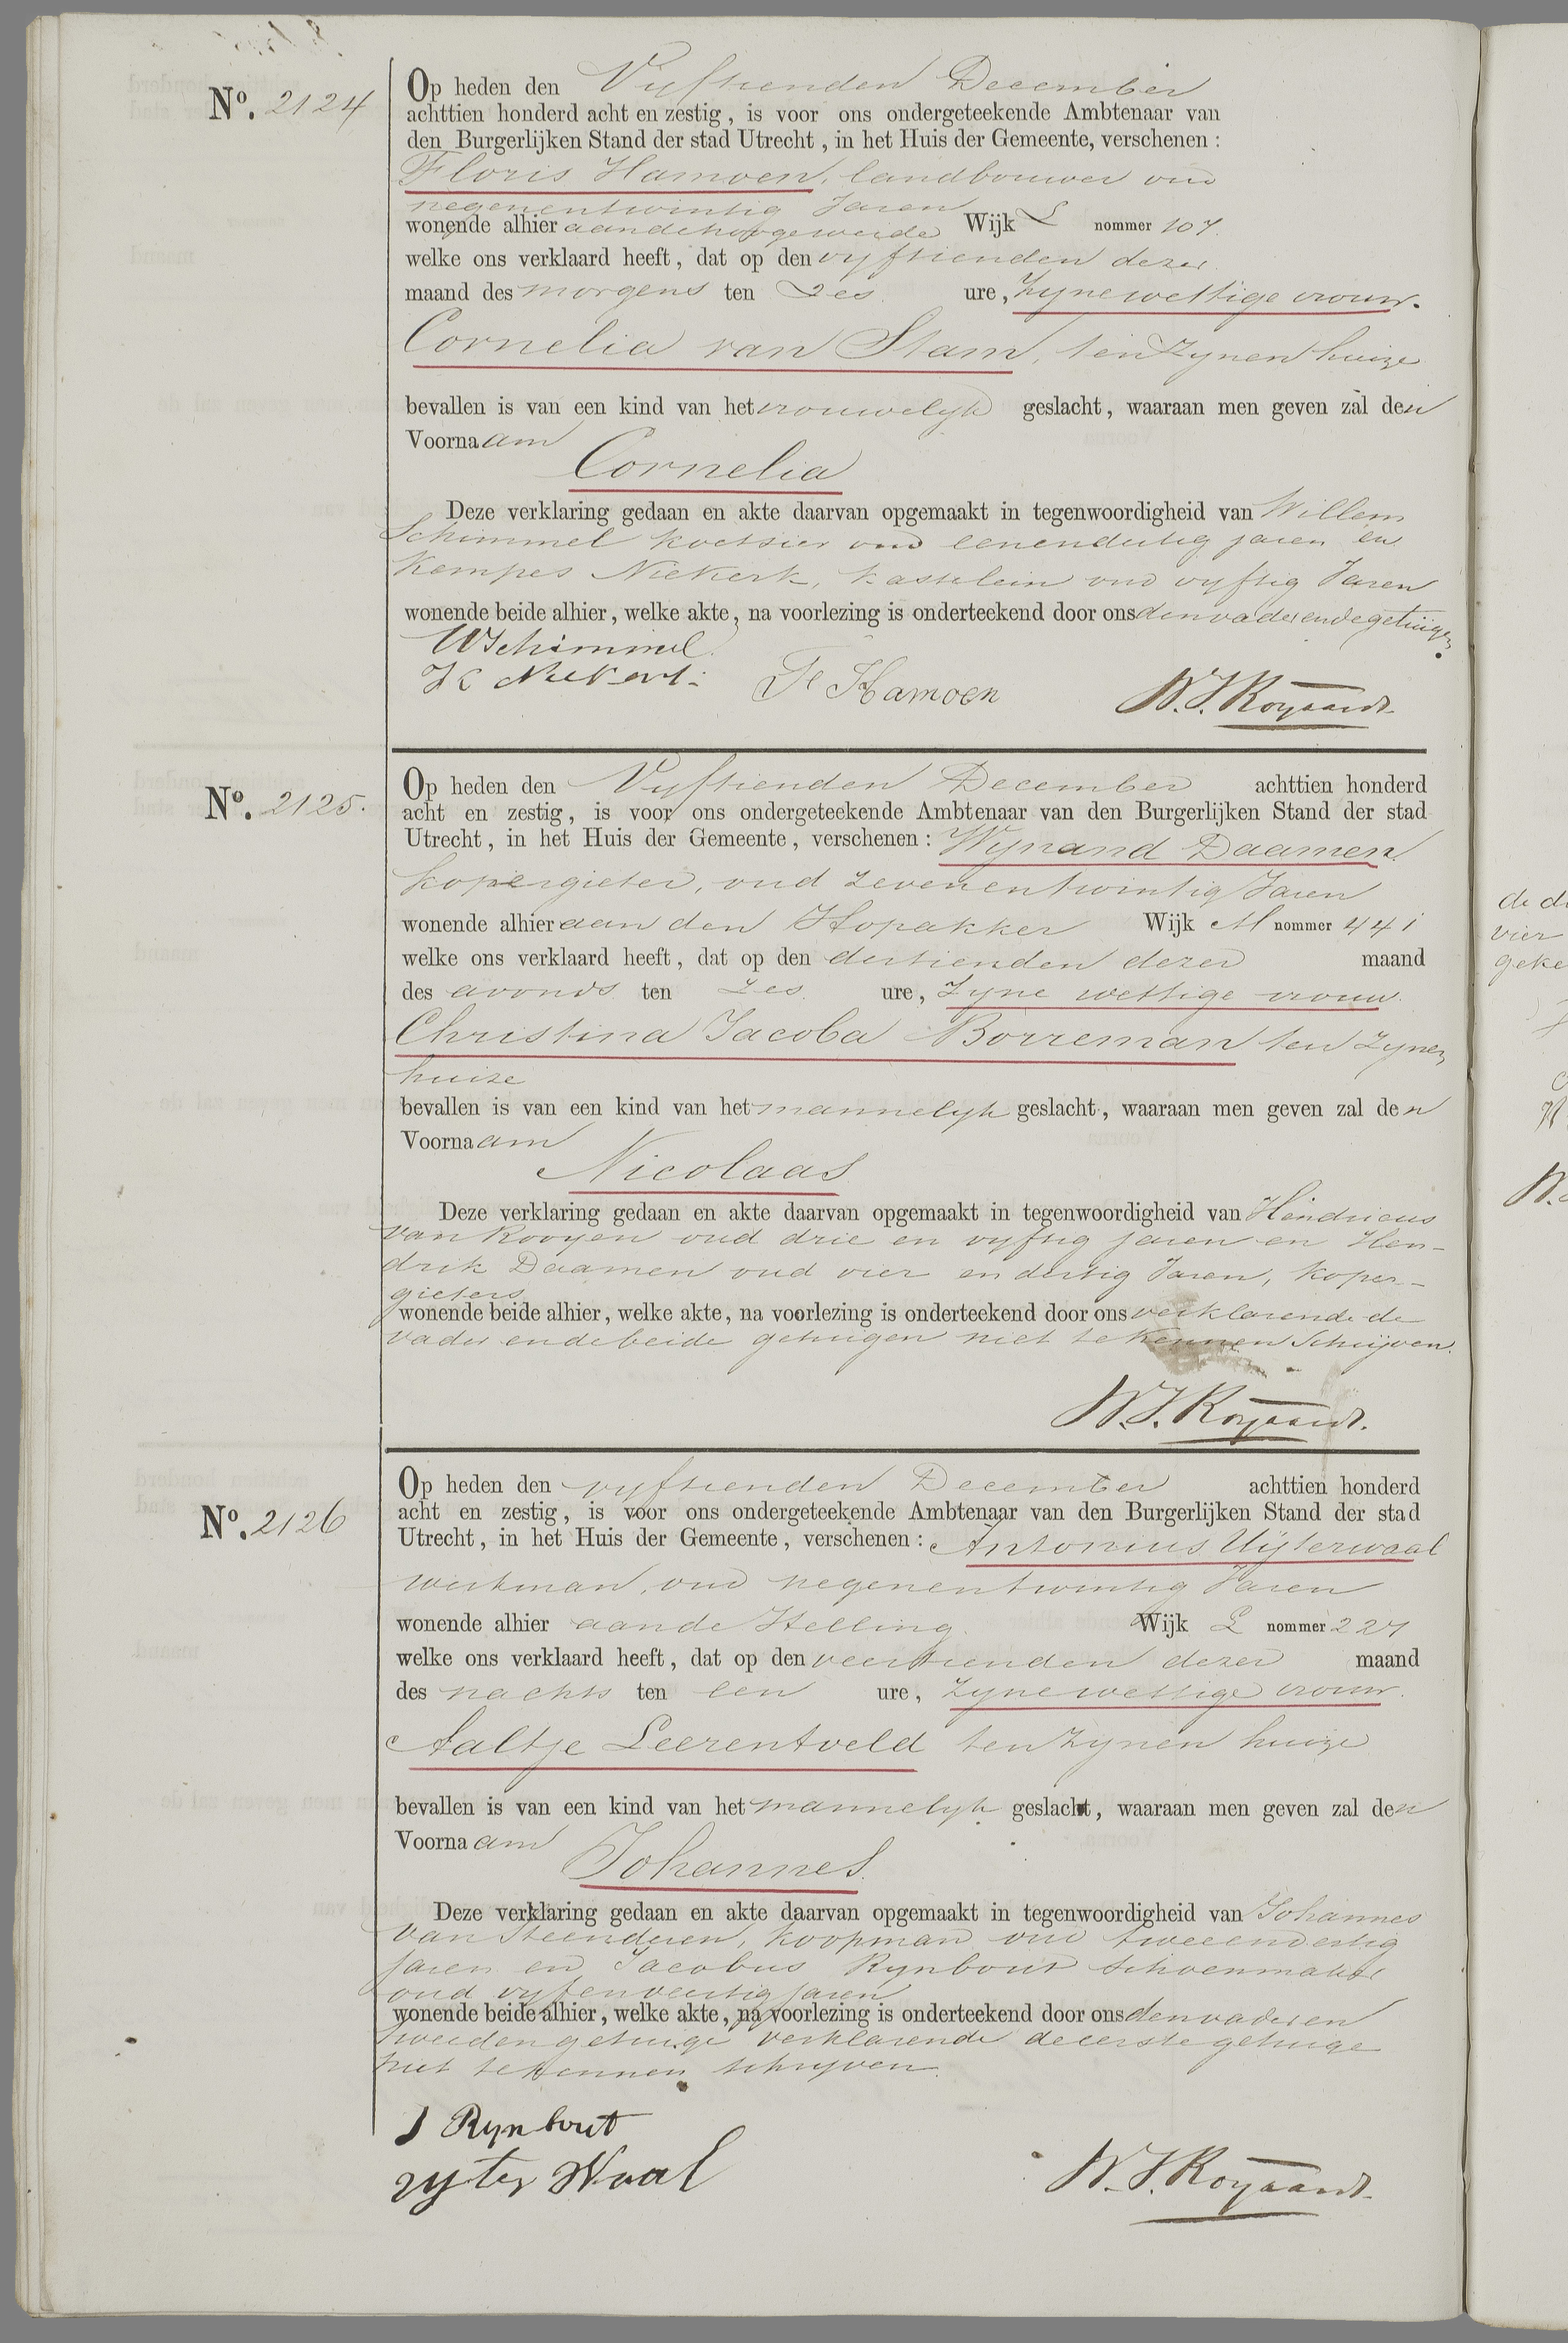 Nº. 2124
Op heden den Vyftienden December
achttien honderd acht en zestig, is voor ons ondergeteekende Ambtenaar van
den Burgerlijken Stand der stad Utrecht, in het Huis der Gemeente, verschenen:
Floris Hamoen, landbouwer oud
negenentwintig Jaren
wonende alhier aandehoogeweide Wijk L nommer 107.
welke ons verklaard heeft, dat op den vyftienden dezer
maand des morgens ten Zes ure, Zyne wettige vrouw.
Cornelia van Stam, ten Zynen huize
bevallen is van een kind van het vrouwelyk geslacht, waaraan men geven zal den
Voornaam
Cornelia
Deze verklaring gedaan en akte daarvan opgemaakt in tegenwoordigheid van Willem
Schimmel koetsier oud eenendertig jaren en
Kempes Niekerk, kastelein oud vyftig Jaren
wonende beide alhier, welke akte, na voorlezing is onderteekend door ons den vader en de getuigen.
WSchimmel.
K Niekerk
Fl Hamoen
W.J. Royaards
Nº. 2125.
Op heden den Vyftienden December achttien honderd
acht en zestig, is voor ons ondergeteekende Ambtenaar van den Burgerlijken Stand der stad
Utrecht, in het Huis der Gemeente, verschenen: Wynand Daamen.
kopergieter, oud zevenentwintig Jaren
wonende alhier aan den Hopakker Wijk M nommer 441
welke ons verklaard heeft, dat op den dertienden dezer maand
des avonds ten Zes ure, Zyne wettige vrouw.
Christina Jacoba Borreman ten zynen
huize
bevallen is van een kind van het mannelyk geslacht, waaraan men geven zal den
Voornaam
Nicolaas
Deze verklaring gedaan en akte daarvan opgemaakt in tegenwoordigheid van Hendricus
van Rooyen oud drie en vyftig jaren en Hen-
drik Daamen oud vier en dertig Jaren, koper-
gieters
wonende beide alhier, welke akte, na voorlezing is onderteekend door ons verklarende de
vader en de beide getuigen niet te kennen Schrijven.
W.J. Royaards.
Nº. 2126
Op heden den vyftienden December achttien honderd
acht en zestig, is voor ons ondergeteekende Ambtenaar van den Burgerlijken Stand der stad
Utrecht, in het Huis der Gemeente, verschenen: Antonius Uijterwaal
werkman, oud negenentwintig Jaren
wonende alhier aan de Helling Wijk L nommer 227
welke ons verklaard heeft, dat op den veertienden dezer maand
des nachts ten een ure, zyne wettige vrouw.
Aaltje Leerentveld ten zynen huize
bevallen is van een kind van het mannelyk geslacht, waaraan men geven zal den
Voornaam
Johannes.
Deze verklaring gedaan en akte daarvan opgemaakt in tegenwoordigheid van Johannes
van Steenderen, koopman oud tweeendertig
jaren en Jacobus Rynbout schoenmaker
oud vyfenveertig jaren
wonende beide alhier, welke akte, na voorlezing is onderteekend door ons den vader en
tweeden getuige verklarende de eerste getuige
niet te kennen schryven.
J Rynbout
uyter Waal
W.J. Royaards.
de d
vier
geke